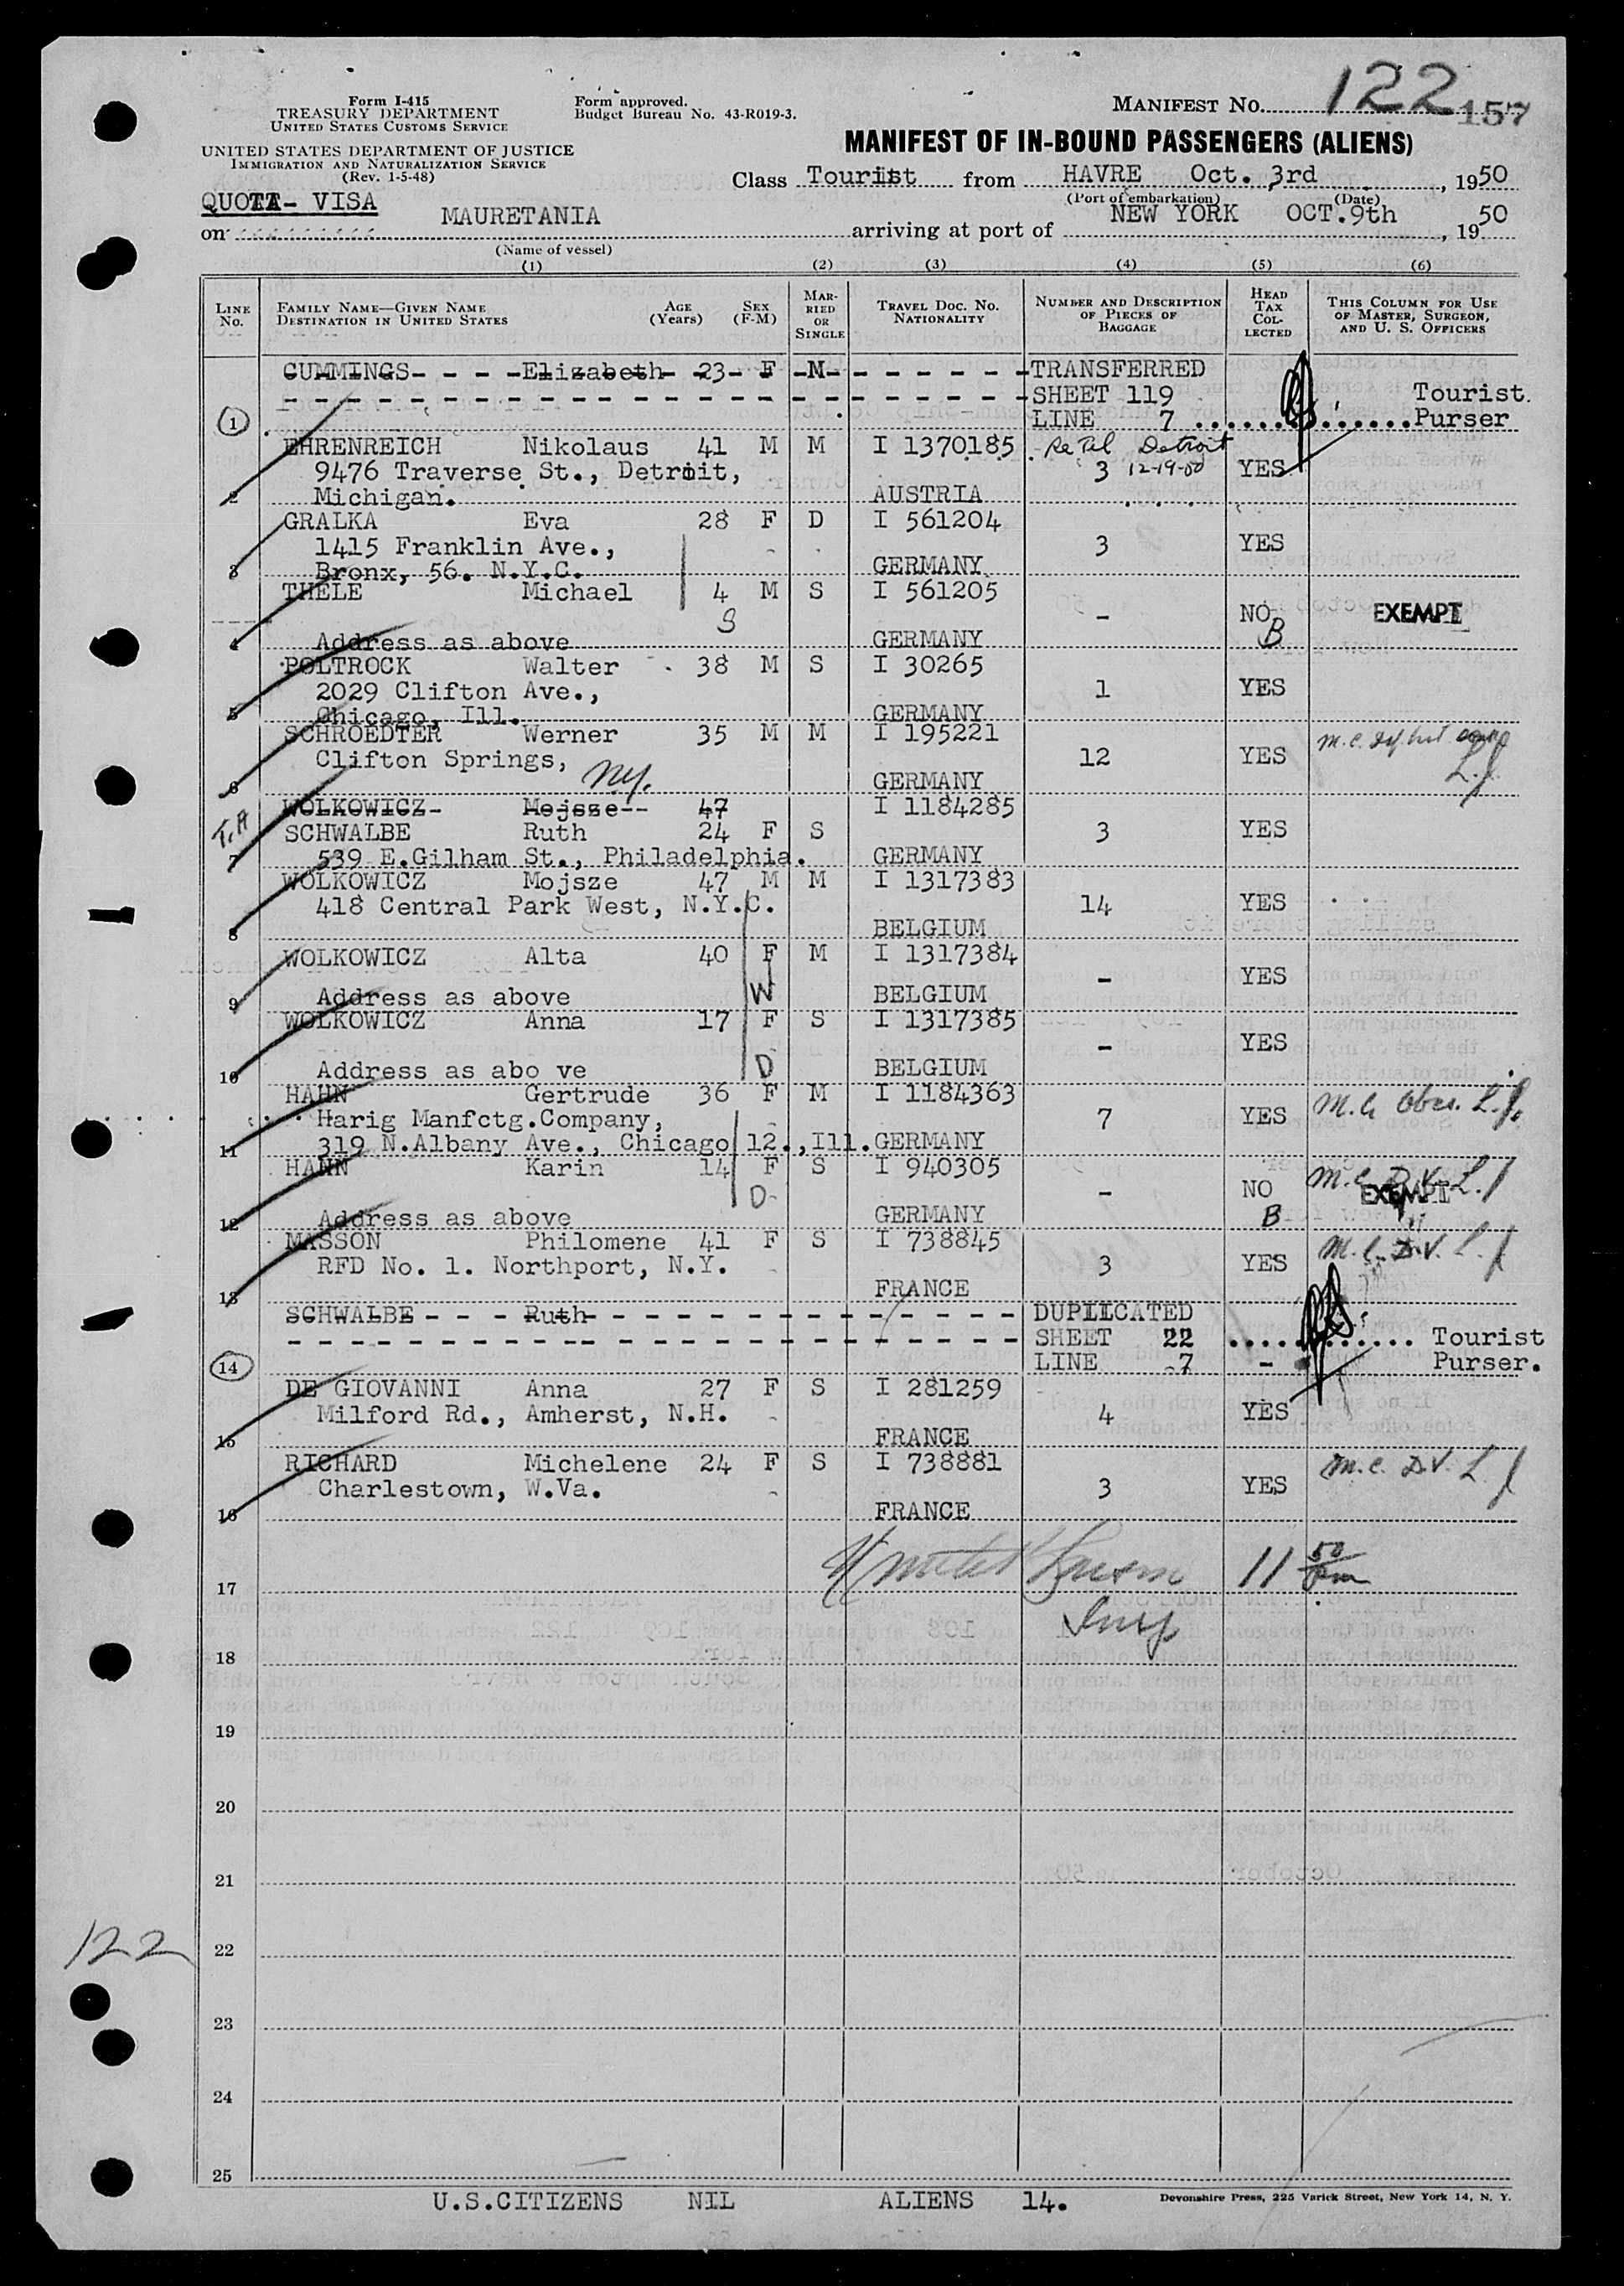 Form I-415
TREASURY DEPARTMENT
UNITED STATES CUSTOMS SERVICE
UNITED STATES DEPARTMENT OF JUSTICE
IMMIGRATION AND NATURALIZATION SERVICE
(Rev. 1-5-48)
Form approved.
Budget Bureau No. 43-R019-3.
MANIFEST NO. 122 157
MANIFEST OF IN-BOUND PASSENGERS (ALIENS)
Class Tourist from HAVRE Oct. 3rd, 1950
(Port of embarkation) (Date)
QUOTA- VISA
on MAURETANIA arriving at port of NEW YORK OCT.9th, 1950
(Name of vessel)
(1) (2) (3) (4) (5) (6)
LINE No. FAMILY NAME—GIVEN NAME DESTINATION IN UNITED STATES AGE (Years) SEX (F-M) MARRIED OR SINGLE TRAVEL DOC. NO. NATIONALITY NUMBER AND DESCRIPTION OF PIECES OF BAGGAGE HEAD TAX COLLECTED THIS COLUMN FOR USE OF MASTER, SURGEON, AND U. S. OFFICERS
CUMMINGS- - - - -Elizabeth- 23- F -M- - - - - - - -TRANSFERRED
- - - - - - - - - - - - - - - - SHEET 119 Tourist.
1 LINE 7 ............Purser
EHRENREICH Nikolaus 41 M M I 1370185 Re Tel Detroit
9476 Traverse St., Detroit, 3 12-19-50 YES
2 Michigan. AUSTRIA
GRALKA Eva 28 F D I 561204
1415 Franklin Ave., 3 YES
3 Bronx, 56. N.Y.C. GERMANY
THELE Michael 4 M S I 561205
S - NO EXEMPT
B
4 Address as above GERMANY
POLTROCK Walter 38 M S I 30265
2029 Clifton Ave., 1 YES
5 Chicago, Ill. GERMANY
SCHROEDTER Werner 35 M M I 195221
Clifton Springs, N.Y. 12 YES L.J
6 GERMANY
WOLKOWICZ- Mejsze-- 47 I 1184285
T.A SCHWALBE Ruth 24 F S 3 YES
7 539 E.Gilham St., Philadelphia. GERMANY
WOLKOWICZ Mojsze 47 M M I 1317383
418 Central Park West, N.Y.C. 14 YES
8 BELGIUM
WOLKOWICZ Alta 40 F M I 1317384
W - YES
9 Address as above BELGIUM
WOLKOWICZ Anna 17 F S I 1317385
- YES
10 Address as abo ve D BELGIUM
HAHN Gertrude 36 F M I 1184363
Harig Manfctg.Company, 7 YES M.C. Obes. L.J.
11 319 N.Albany Ave., Chicago 12.,Ill. GERMANY
HAHN Karin 14 F S I 940305 M.C. D.V. L.J
D - NO EXEMPT
12 Address as above GERMANY B
MASSON Philomene 41 F S I 738845 M.C. D.V. L.J
RFD No. 1. Northport, N.Y. 3 YES
13 FRANCE
SCHWALBE - - - -Ruth- - - - - - - - - - - - DUPLICATED
- - - - - - - - - - - - - - - - SHEET 22 ............ Tourist
14 LINE 7 - Purser.
DE GIOVANNI Anna 27 F S I 281259
Milford Rd., Amherst, N.H. 4 YES
15 FRANCE
RICHARD Michelene 24 F S I 738881 M.C. D.V. L.J
Charlestown, W.Va. 3 YES
16 FRANCE
17 11 50
18 Insp
19
20
21
122 22
23
24
25
U.S.CITIZENS NIL ALIENS 14.
Devonshire Press, 225 Varick Street, New York 14, N. Y.